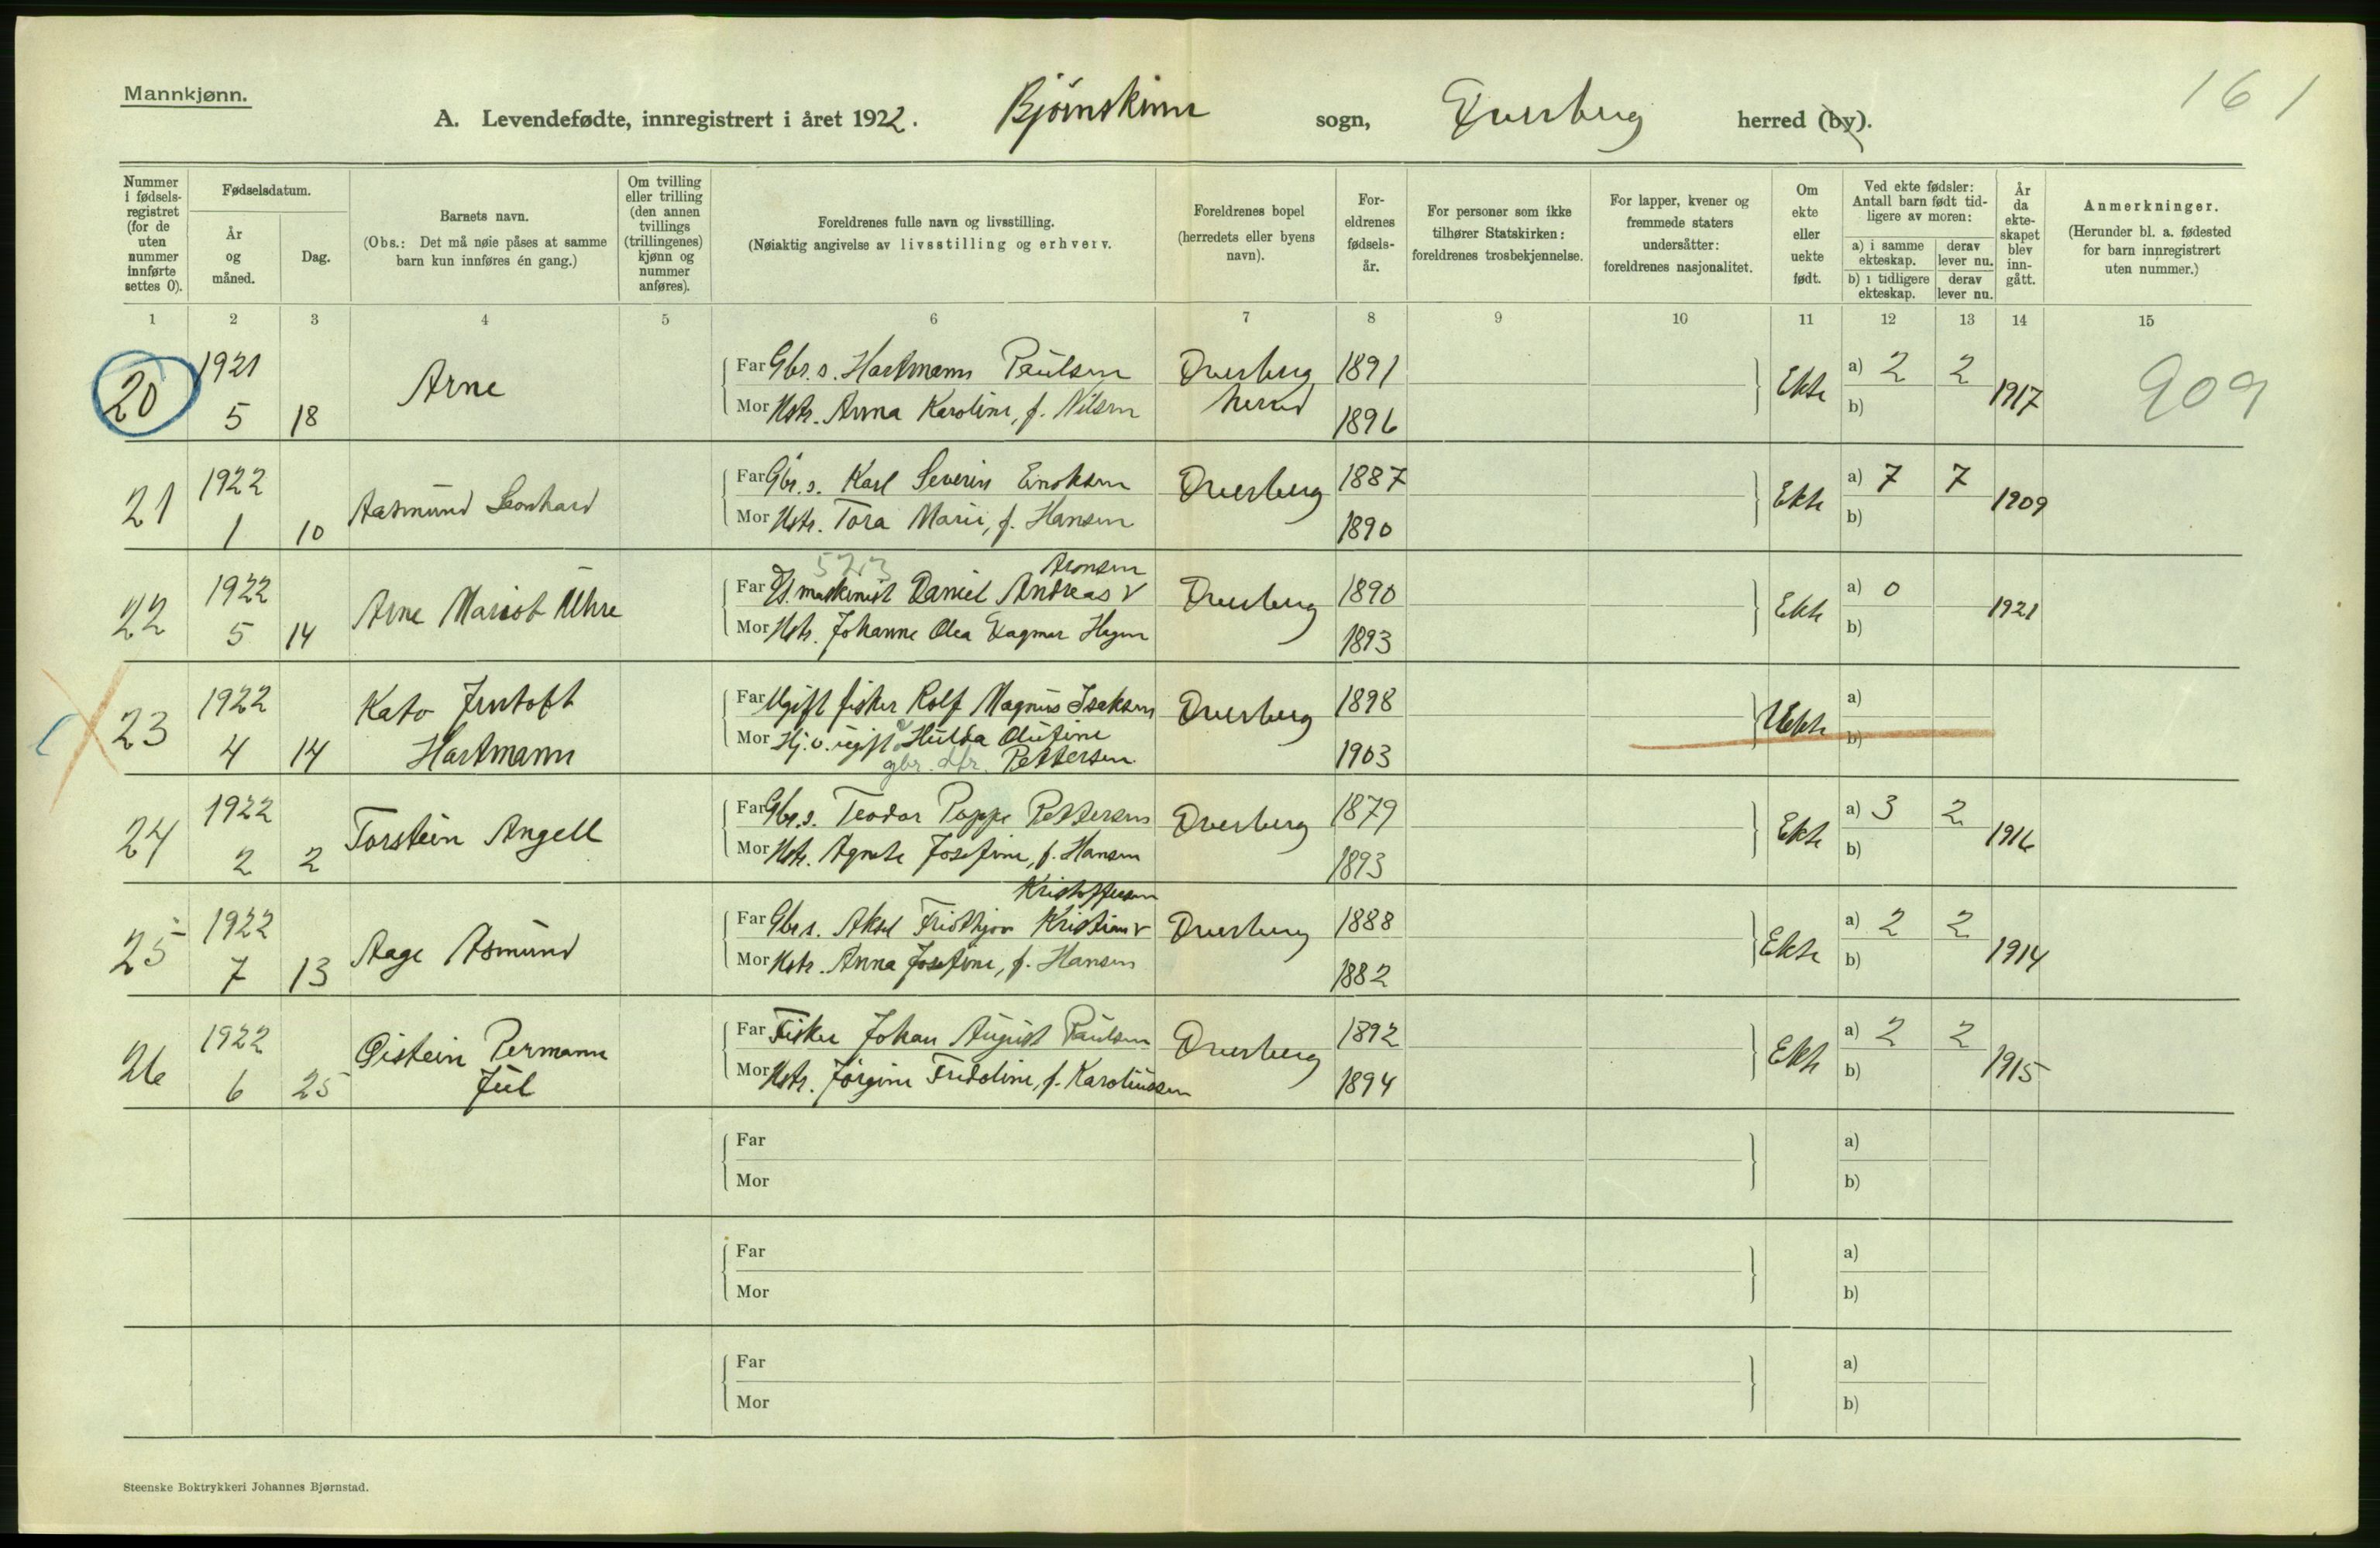 Mannkjønn.
161
A. Levendefødte, innregistrert i året 1922. Bjørnskinn sogn, Dverberg herred (by).
Nummer i fødsels-registret (for de uten nummer innførte settes 0).
Fødselsdatum.
År og måned.
Dag.
Barnets navn.
(Obs.: Det må nøie påses at samme barn kun innføres én gang.)
Om tvilling eller trilling (den annen tvillings (trillingenes) kjønn og nummer anføres).
Foreldrenes fulle navn og livsstilling.
(Nøiaktig angivelse av livsstilling og erhverv.
Foreldrenes bopel (herredets eller byens navn).
For-eldrenes fødsels-år.
For personer som ikke tilhører Statskirken: foreldrenes trosbekjennelse.
For lapper, kvener og fremmede staters undersåtter: foreldrenes nasjonalitet.
Om ekte eller uekte født.
Ved ekte fødsler: Antall barn født tid-ligere av moren:
a) i samme ekteskap.
derav lever nu.
b) i tidligere ekteskap.
derav lever nu.
År da ekte-skapet blev inn-gått.
Anmerkninger.
(Herunder bl. a. fødested for barn innregistrert uten nummer.)
1 2 3 4 5 6 7 8 9 10 11 12 13 14 15
20 1921 5 18 Arne
Far Gbr. s. Hartmann Paulsen Dverberg herred 1891 Ekte a) 2 2 1917 909
Mor Hstr. Anna Karoline, f. Nilsen 1896 b)
21 1922 1 10 Aasmund Leonhard
Far Gbr. s. Karl Severin Enoksen Dverberg 1887 Ekte a) 7 7 1909
Mor Hstr. Tora Marie, f. Hansen 1890 b)
523 Aronsen
22 1922 5 14 Arne Mariot Uhre
Far maskinist Daniel Andreas v Dverberg 1890 Ekte a) 0 1921
Mor Hstr. Johanne Olea Dagmar Hagen 1893 b)
23 1922 4 14 Kato Hartmann
Far Ugift fisker Rolf Magnus Isaksen Dverberg 1898 Uekte a)
Mor Hj. v. ugift Hulda Olufine 1903 b)
gbr. dtr. Pettersen
24 1922 2 2 Torstein Angell
Far Gbr. s. Teodor Poppe Pettersen Dverberg 1879 Ekte a) 3 2 1916
Mor Hstr. Agnete Josefine, f. Hansen 1893 b)
Kristoffersen
25 1922 7 13 Aage Asmund
Far Gbr s. Aksel Fridthjov Kristian v Dverberg 1888 Ekte a) 2 2 1914
Mor Hstr. Anna Josefine, f. Hansen 1882 b)
26 1922 6 25 Øistein Permann Juel
Far Fisker Johan August Paulsen Dverberg 1892 Ekte a) 2 2 1915
Mor Hstr. Jørgine Fredoline, f. Karoliussen 1894 b)
Far a)
Mor b)
Far a)
Mor b)
Far a)
Mor b)
Steenske Boktrykkeri Johannes Bjørnstad.